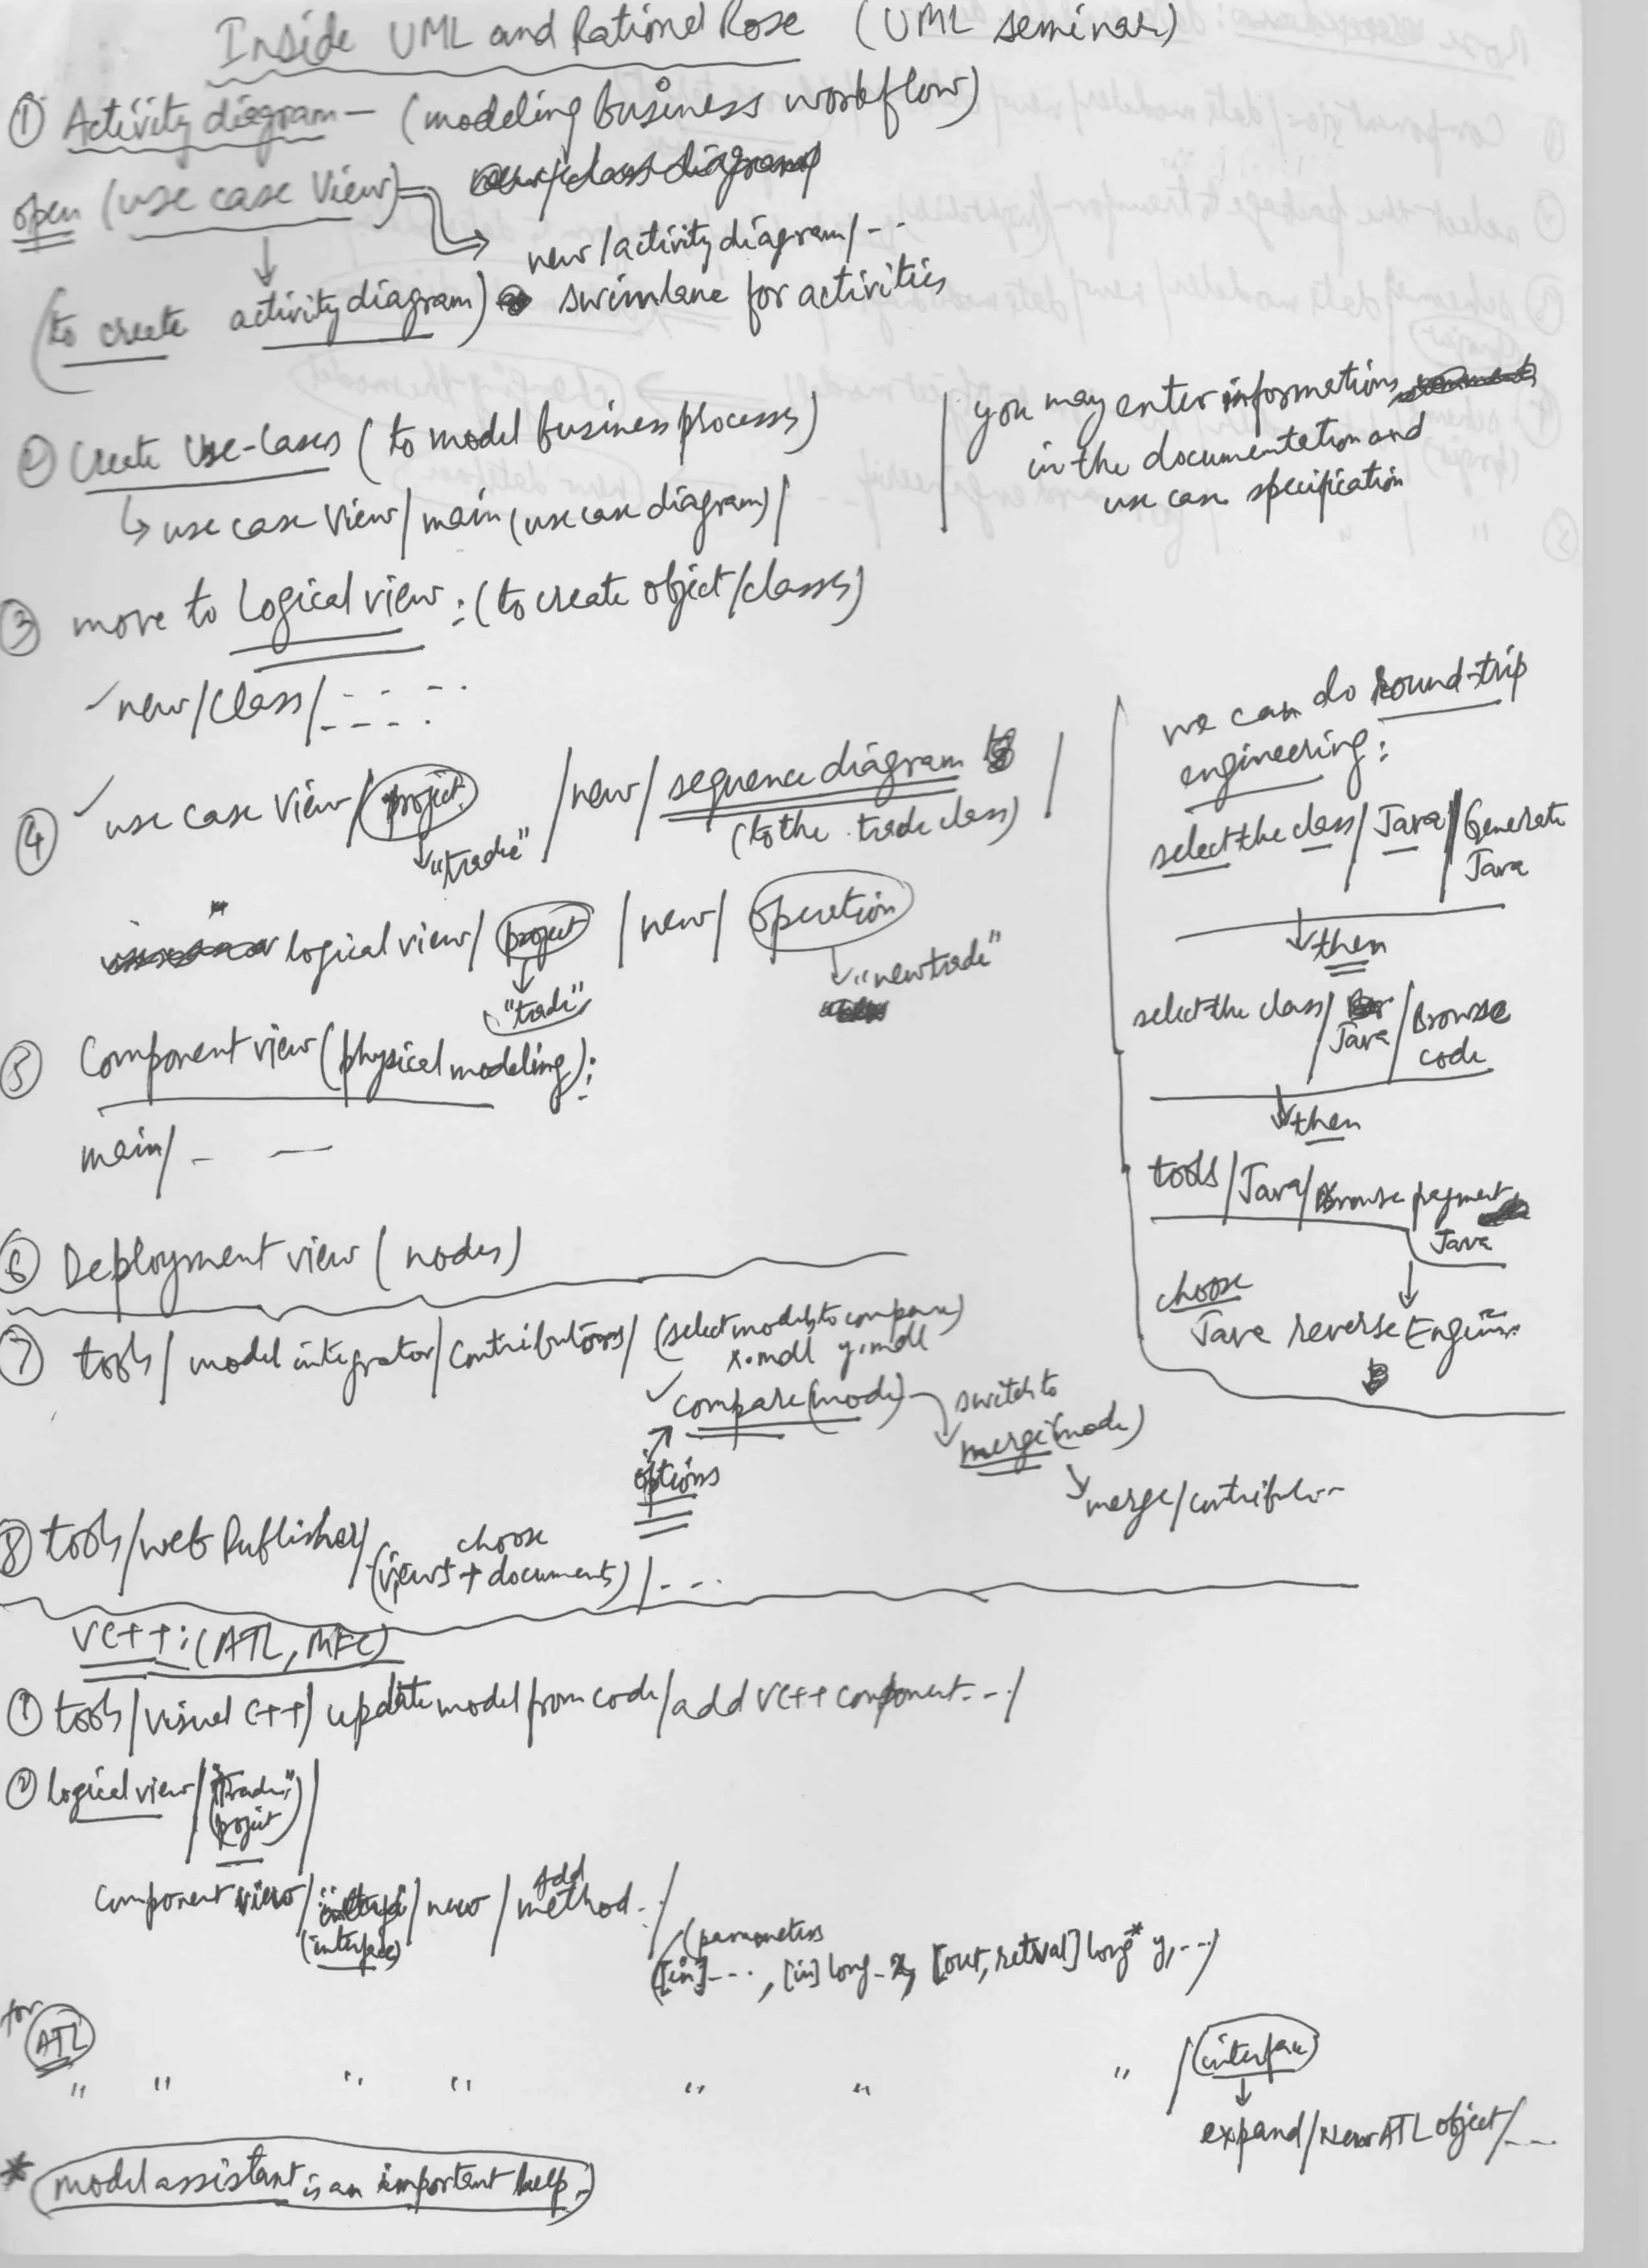 Inside UML and Rational Rose (UML seminar)
① Activity diagram — (modeling business workflow)
open (use case View)
new/activity diagram/- --
(to create activity diagram) swimlane for activities
② Create Use-Cases (to model business processes)
↳ use case View/main (use case diagram)/
you may enter informations
in the documentation and
use case specification
③ move to Logical view : (to create object/classes)
✓ new/Class/- - - -
④ ✓ use case View/project /new/ sequence diagram /
"trade" (to the trade class)
logical view/ project /new/ operation
"trade" "new trade"
⑤ Component view (physical modeling):
main/ - —
⑥ Deployment view (nodes)
we can do Round-trip
engineering:
select the class/Java/Generate
Java
↓ then
select the class/ Java /Browse
code
↓ then
tools/Java/Browse payment
Java
choose
Java reverse Engin..
⑦ tools/ model integrator/contributors/ (select models to compare)
x.mdl y.mdl
✓ compare (mode) switch to
merge (mode)
options
merge/contributor..
⑧ tools/web Publisher/ choose
(views + documents)/- - -
VC++: (ATL, MFC)
① tools/visual C++/ update model from code/add VC++ component.--/
② logical view/"Trade"/
(project)
component view/ /new / Add
method../
(interface)
(parameters
([in]--- , [in] long-x, [out, retval] long* y,---)
for
ATL
" " " " " " " / interface
expand/New ATL object/---
* (model assistant is an important help.)